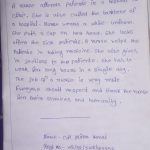 A nurse attends patients in a hospital or
clinic. She is also called the backbone of
a hospital. Nurse wears a white uniform.
She puts a cap on her head. She looks
after the sick patients. A nurse helps the
patients in taking medicine. She also gives
injections to the patients. She has to
work for long hours in a single day.
The job of a nurse is very noble.
Everyone should respect and thank the nurses
for their service and humanity.
Name -